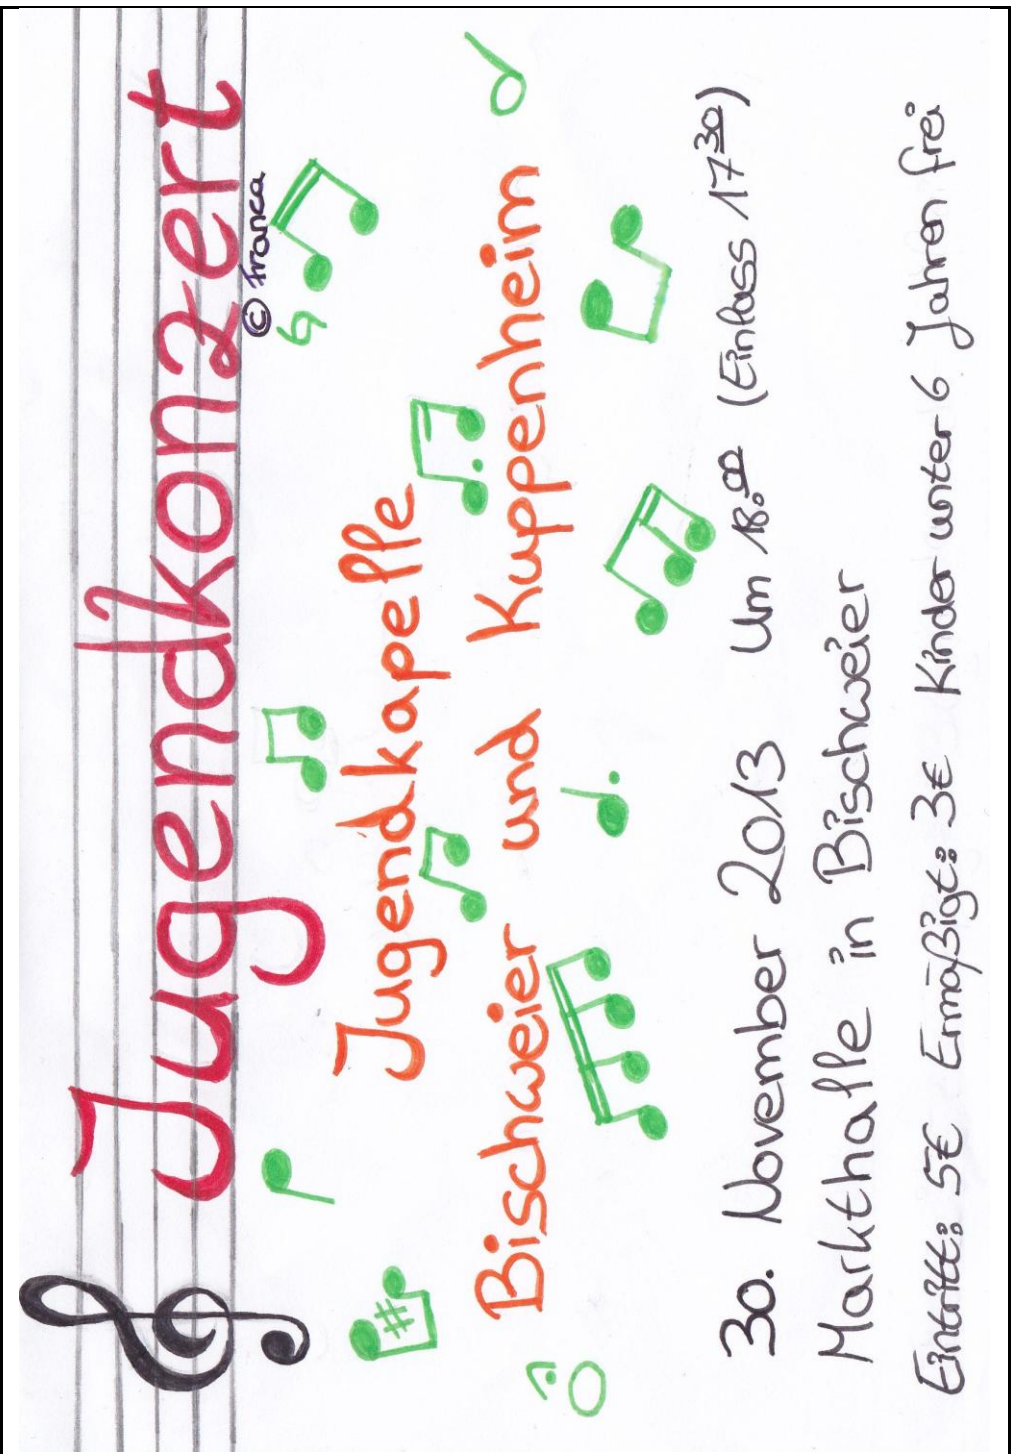 Jugendkonzert
© Franca
Jugendkapelle
Bischweier und Kuppenheim
30. November 2013 Um 18.00 (Einlass 17 30)
Markthalle in Bischweier
Eintritt: 5€ Ermäßigt: 3€ Kinder unter 6 Jahren frei